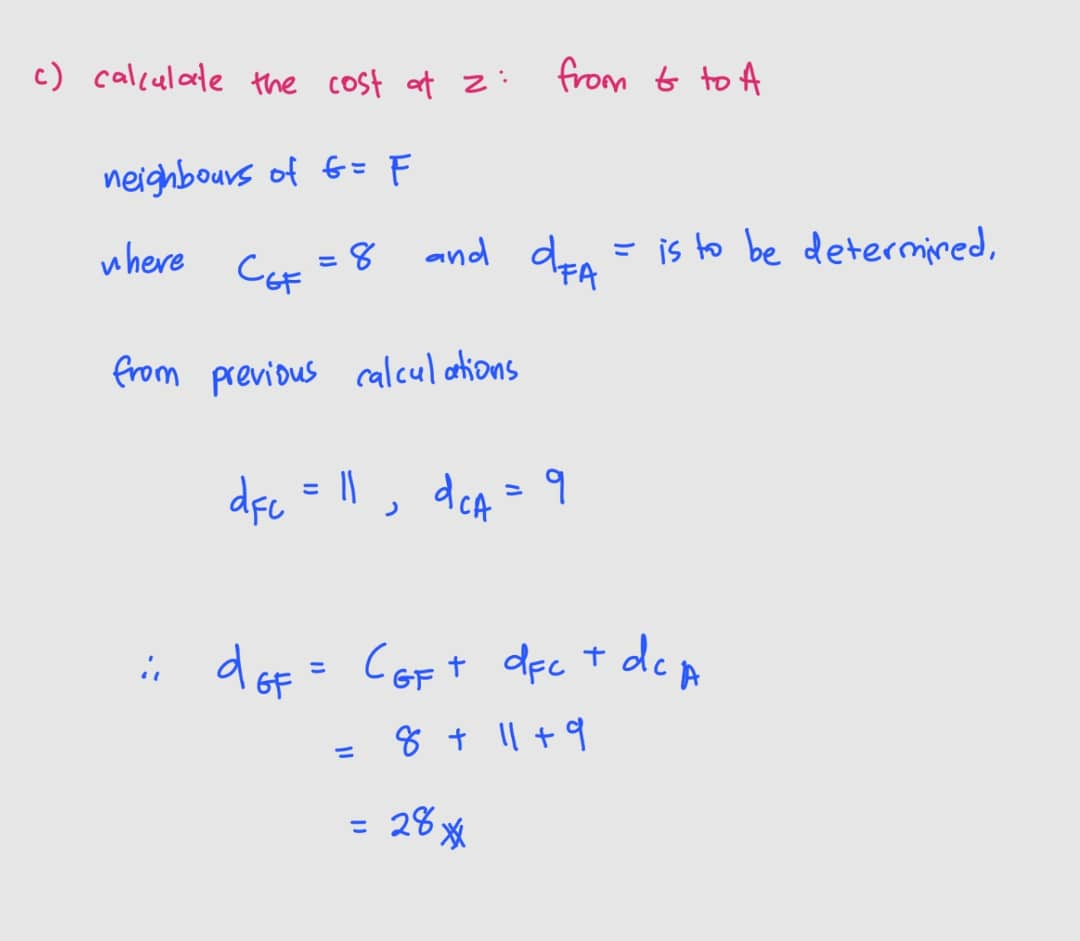 c) calculate the cost at z: from G to A
neighbours of G = F
where C_GF = 8 and d_FA = is to be determined,
from previous calculations
d_FC = 11 , d_CA = 9
∴ d_GF = C_GF + d_FC + d_CA
= 8 + 11 + 9
= 28